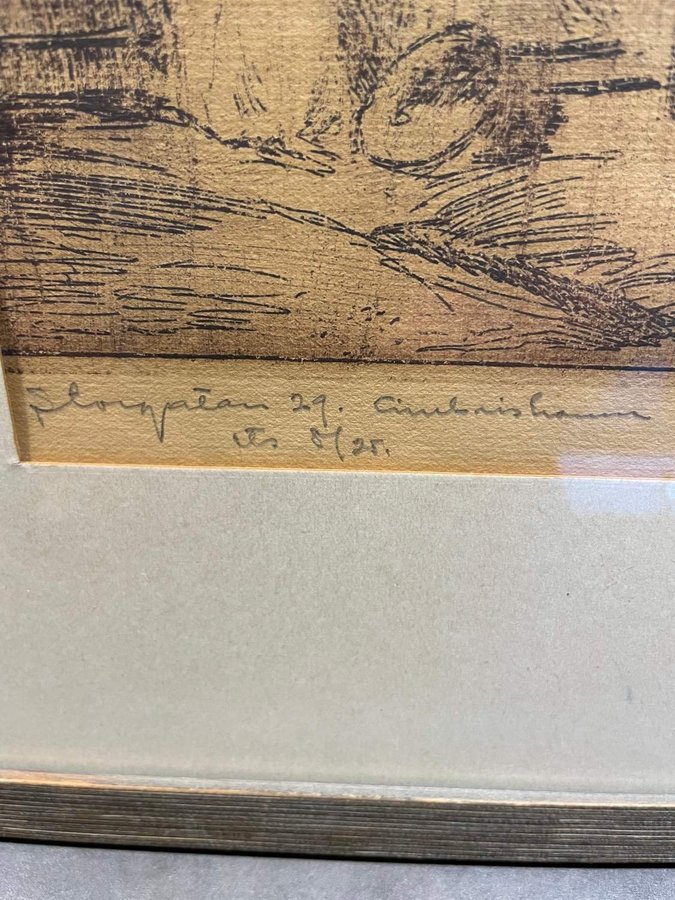 Storgatan 29. Cimbrishamn
ets 8/25.